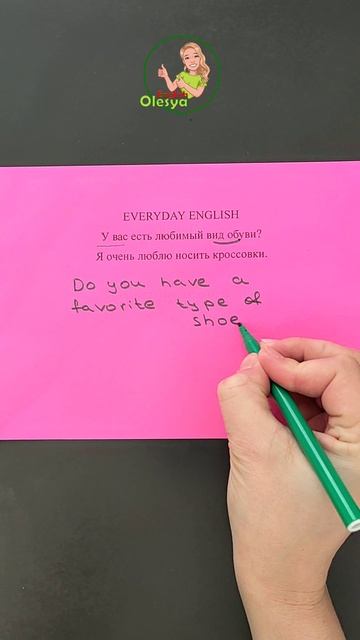 English
Olesya
EVERYDAY ENGLISH
У вас есть любимый вид обуви?
Я очень люблю носить кроссовки.
Do you have a
favorite type of
shoe